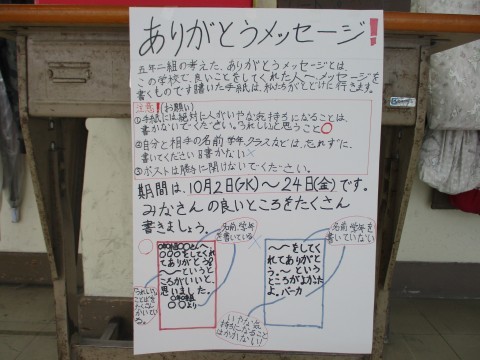 ありがとうメッセージ!
五年二組の考えた、ありがとうメッセージとは、
この学校で、良いことをしてくれた人へ、メッセージを
書くものです。書いた手紙は、私たちがとどけに行きます。
注意!(お願い)
①手紙には絶対に人がいやな気持ちになることは、
書かないでください。うれしいと思うこと○
②自分と相手の名前、学年、クラスなどは、忘れずに、
書いてください。書かない×
③ポストは勝手に開けないでください。
期間は、10月2日(木)〜24日(金)です。
みなさんの良いところをたくさん
書きましょう。
名前、学年を書いている
名前、学年を書いていない
○
×
○年○組○○さんへ
○○○をしてくれてありがとう。
〜〜というところがいいと、
思いました。
○年○組
○○より
〜〜をしてくれてありがとう。〜というところがよかったよ。バーカ
うれしいことばをたくさんかいている。
いやな気持ちになることはかかない!!